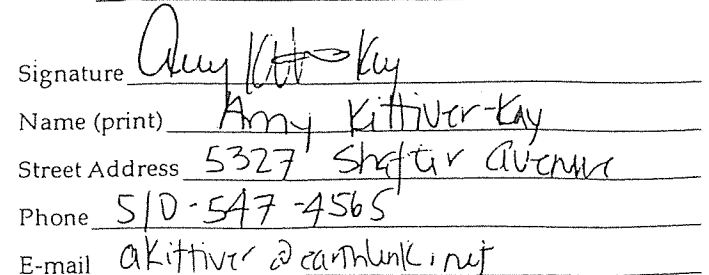 Signature Amy Kitt-Kay
Name (print) Amy Kittiver-Kay
Street Address 5327 Shafter avenue
Phone 510-547-4565
E-mail akittiver@earthlink.net